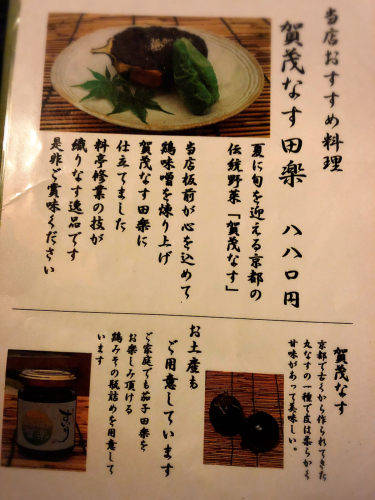 当店おすすめ料理
賀茂なす田楽　八八〇円
夏に旬を迎える京都の
伝統野菜「賀茂なす」
当店板前が心を込めて
鶏味噌を煉り上げ
賀茂なす田楽に
仕立てました
料亭修業の技が
織りなす逸品です
是非ご賞味ください
賀茂なす
京都で古くから作られてきた
丸なすの一種で皮は柔らかく
甘味があって美味しい。
お土産も
ご用意しています
ご家庭でも茄子田楽を
お楽しみ頂ける
鶏みその瓶詰めを用意して
います